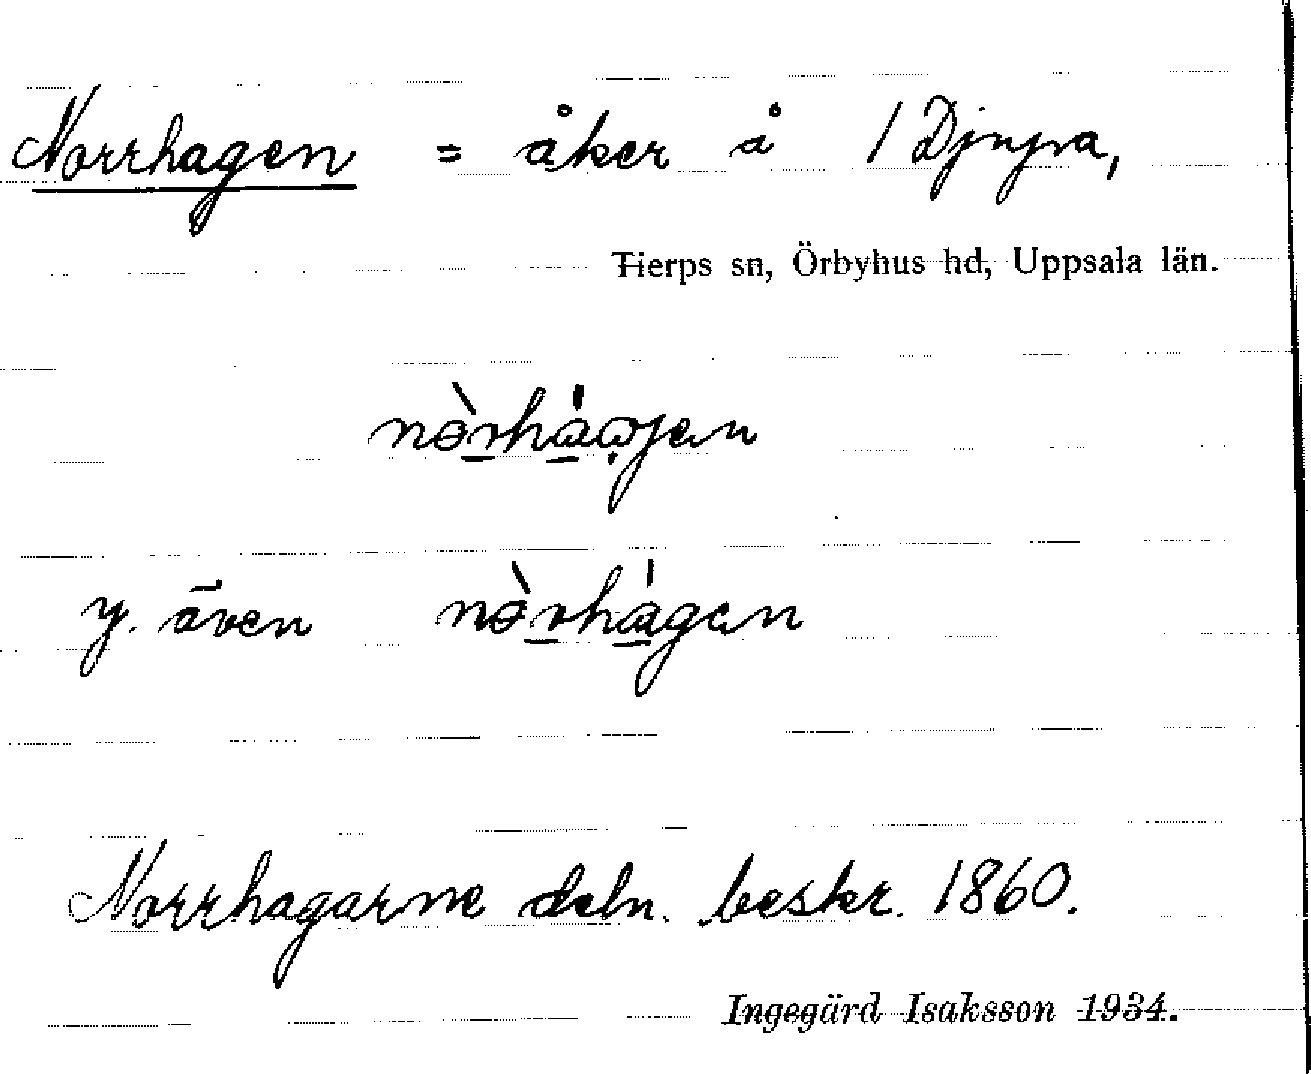 Norrhagen = åker å 1 Djupa,
Tierps sn, Örbyhus hd, Uppsala län.
y. även
Norrhagarne deln. beskr. 1860.
Ingegärd Isaksson 1934.